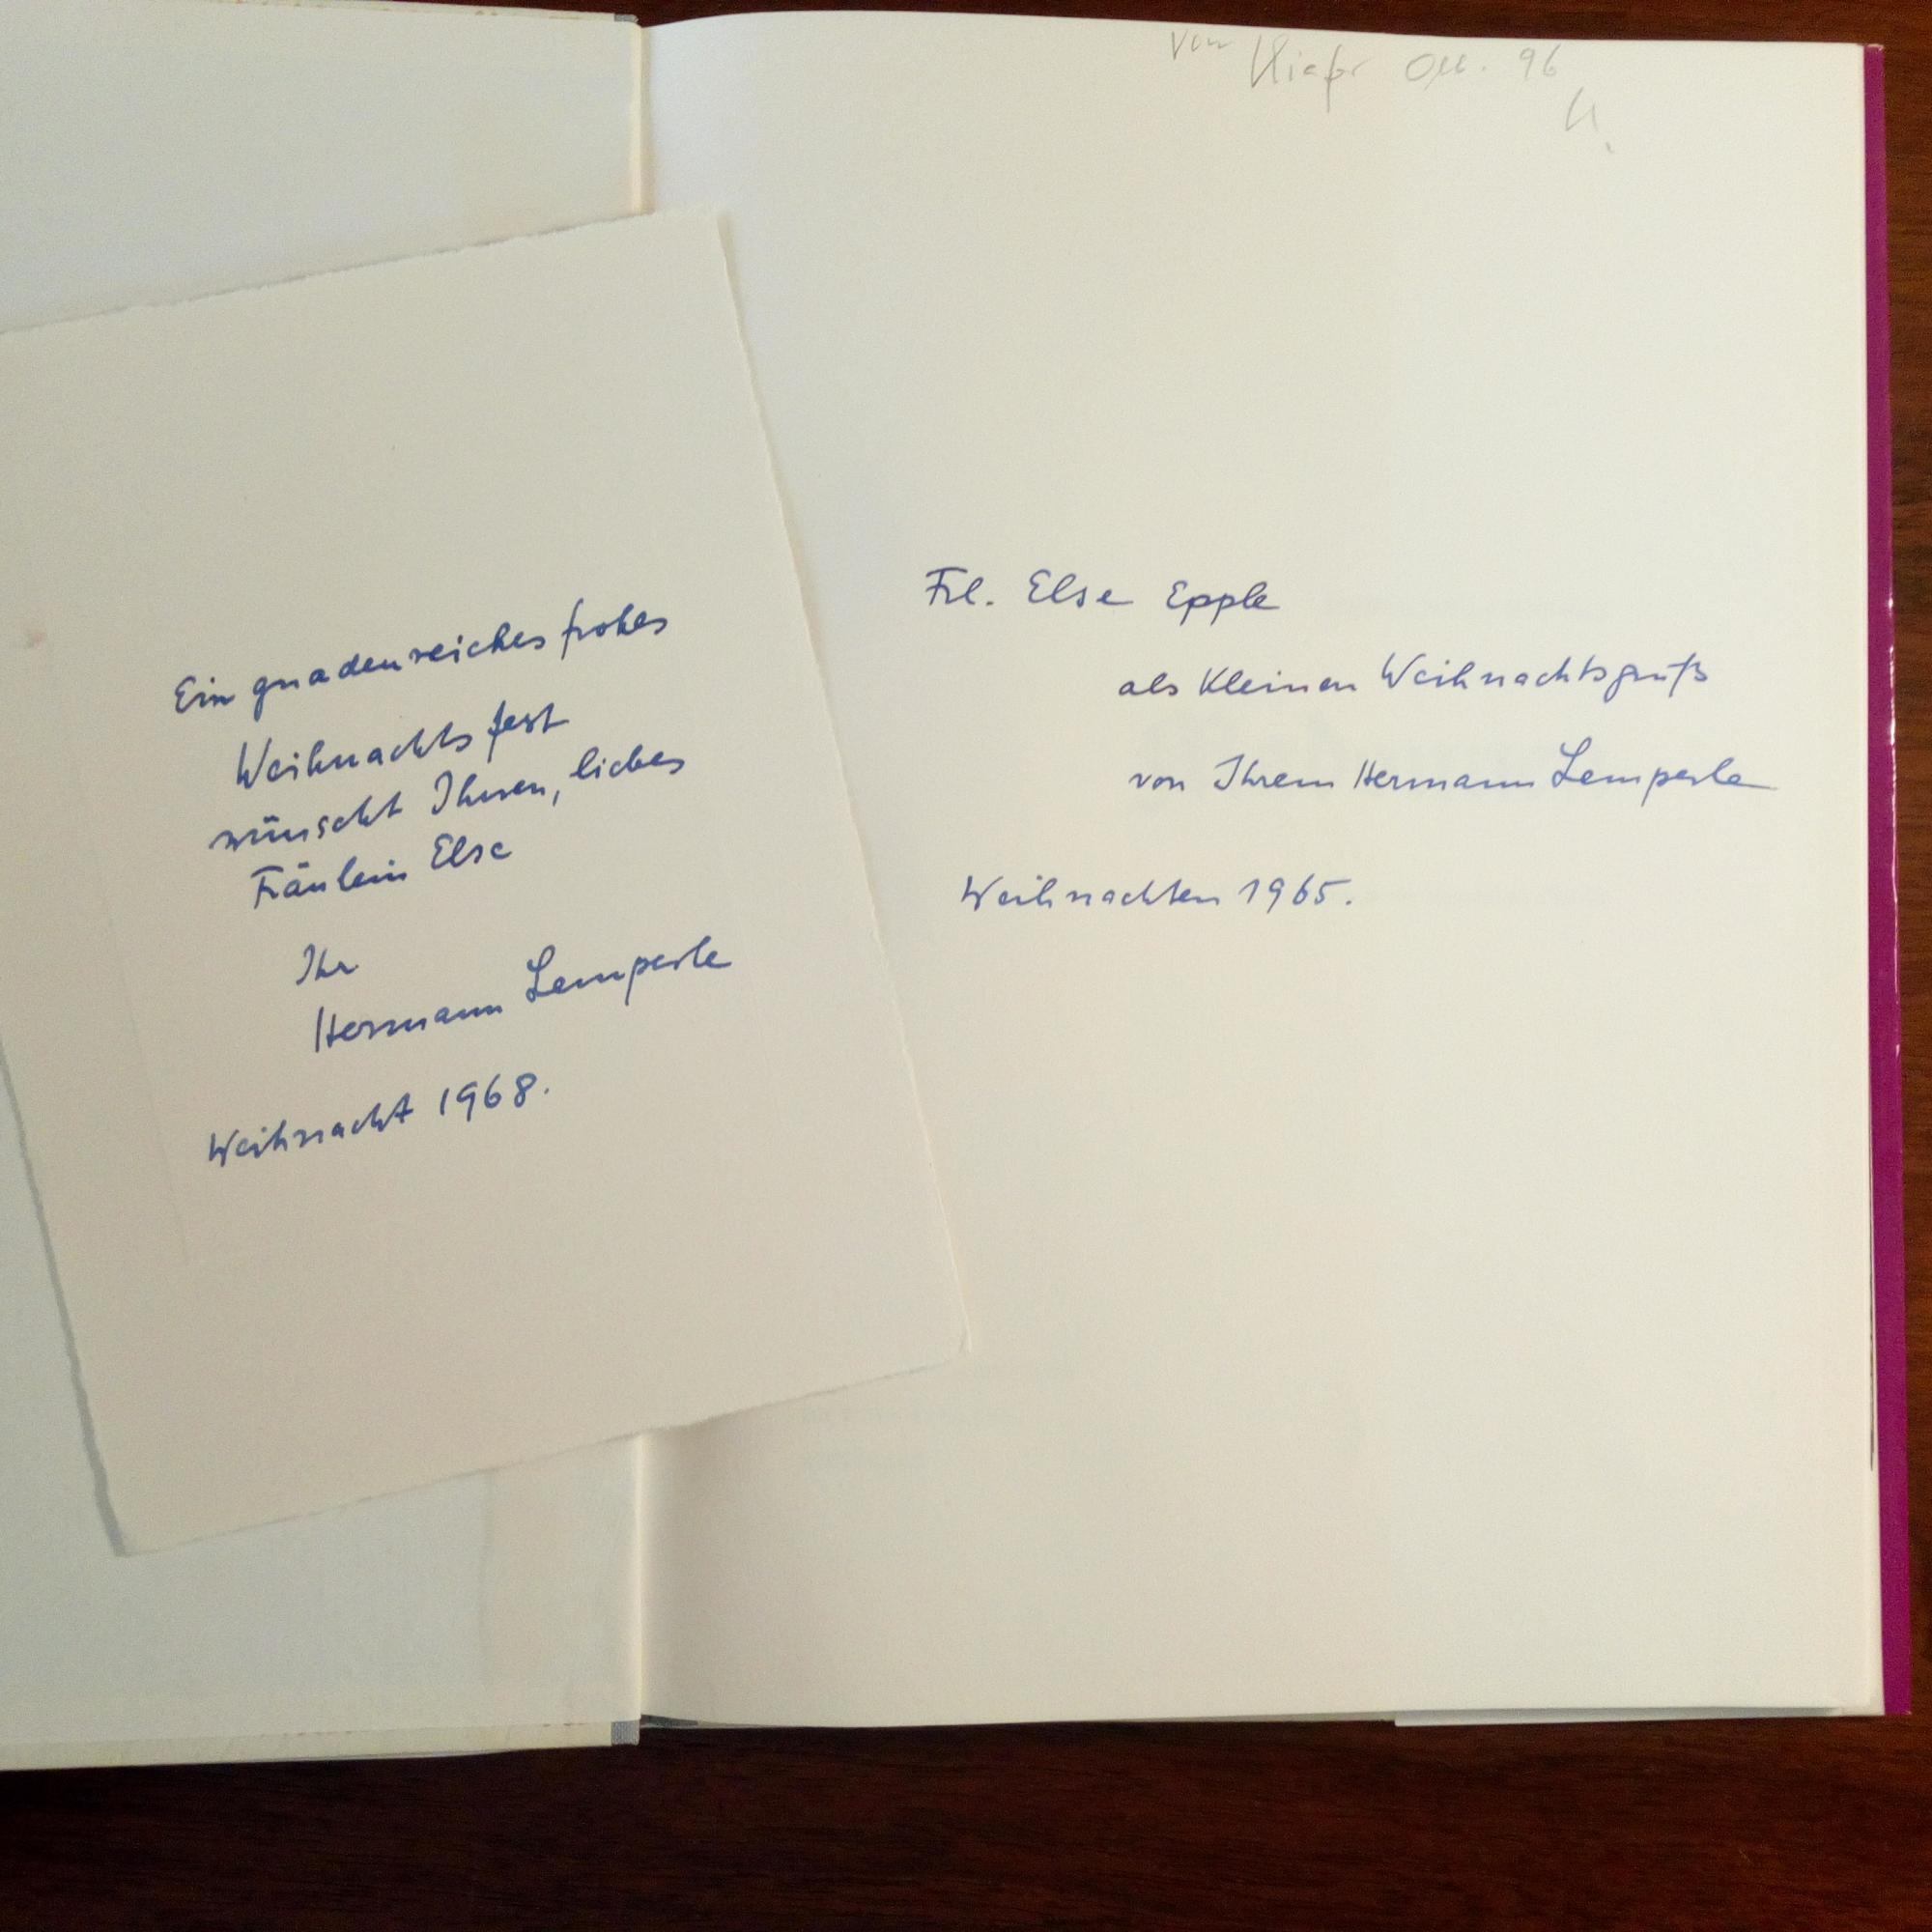 Ein gnadenreiches frohes
Weihnachtsfest
wünscht Ihnen, liebes
Fräulein Else
Ihr
Hermann Lemperle
Weihnacht 1968.
von 96
Frl. Else Epple
als kleinen Weihnachtsgruß
von Ihrem Hermann Lemperle
Weihnachten 1965.